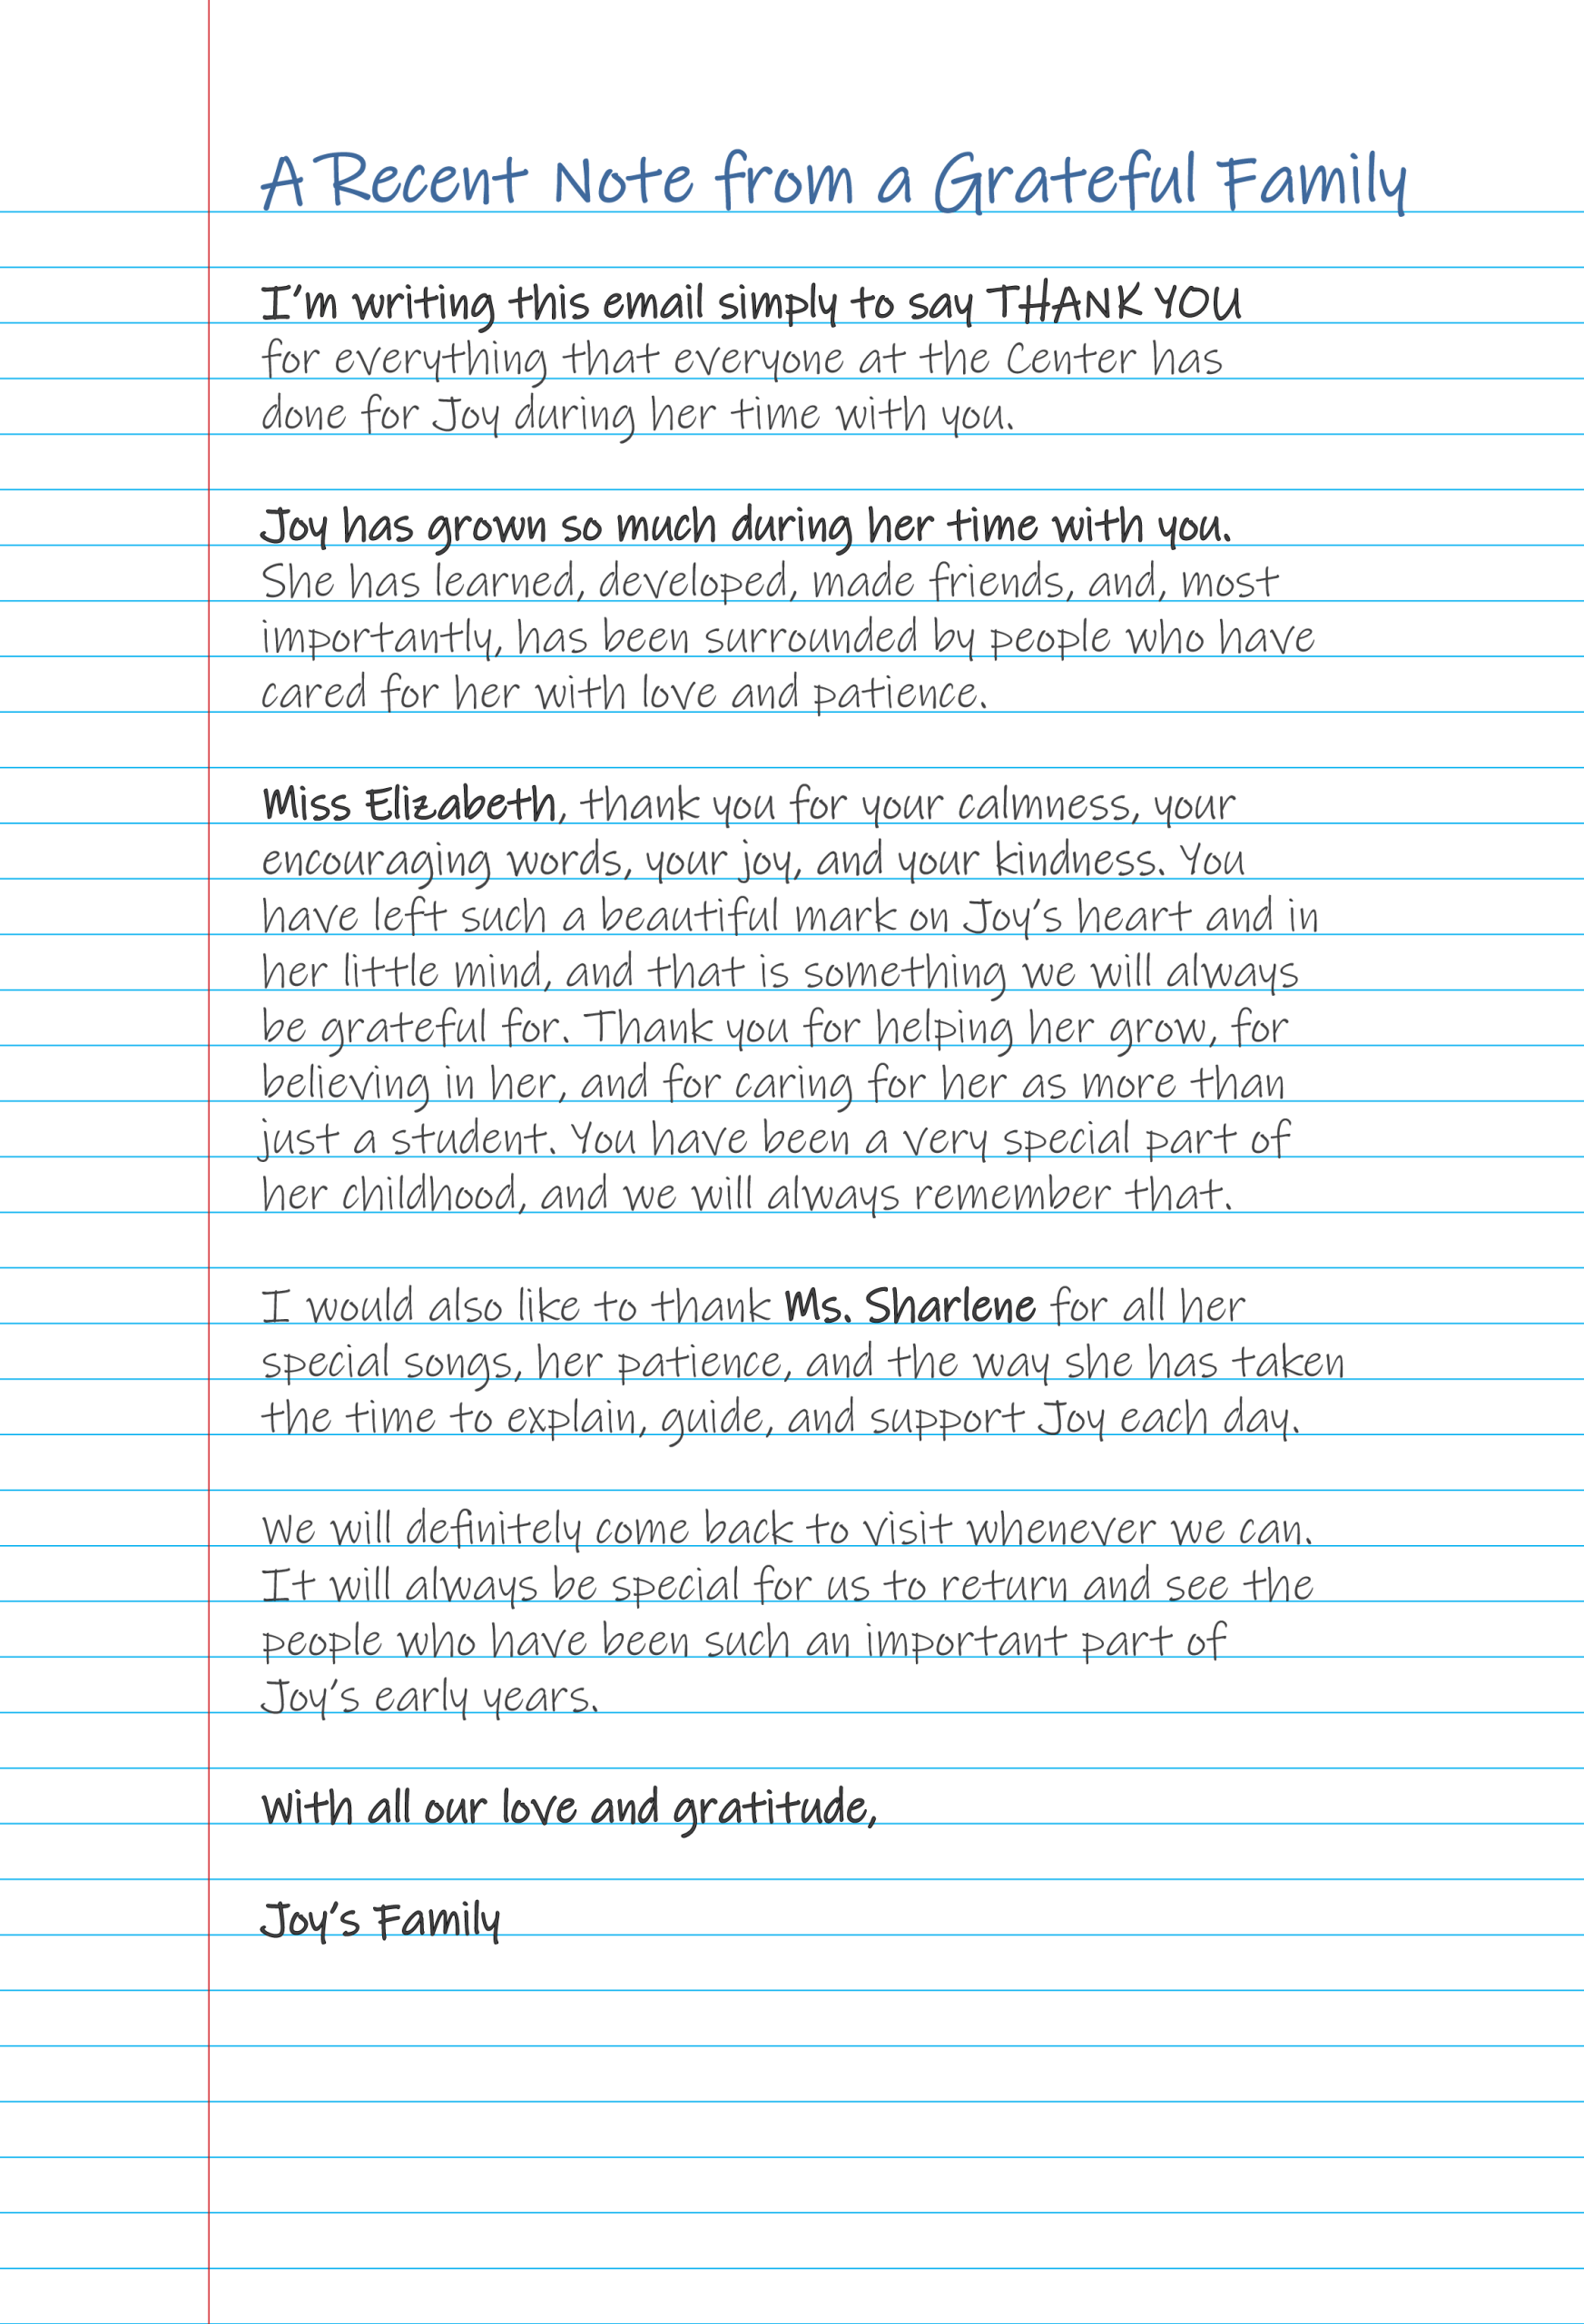 A Recent Note from a Grateful Family
I'm writing this email simply to say THANK YOU
for everything that everyone at the Center has
done for Joy during her time with you.
Joy has grown so much during her time with you.
She has learned, developed, made friends, and, most
importantly, has been surrounded by people who have
cared for her with love and patience.
Miss Elizabeth, thank you for your calmness, your
encouraging words, your joy, and your kindness. You
have left such a beautiful mark on Joy's heart and in
her little mind, and that is something we will always
be grateful for. Thank you for helping her grow, for
believing in her, and for caring for her as more than
just a student. You have been a very special part of
her childhood, and we will always remember that.
I would also like to thank Ms. Sharlene for all her
special songs, her patience, and the way she has taken
the time to explain, guide, and support Joy each day.
We will definitely come back to visit whenever we can.
It will always be special for us to return and see the
people who have been such an important part of
Joy's early years.
With all our love and gratitude,
Joy's Family